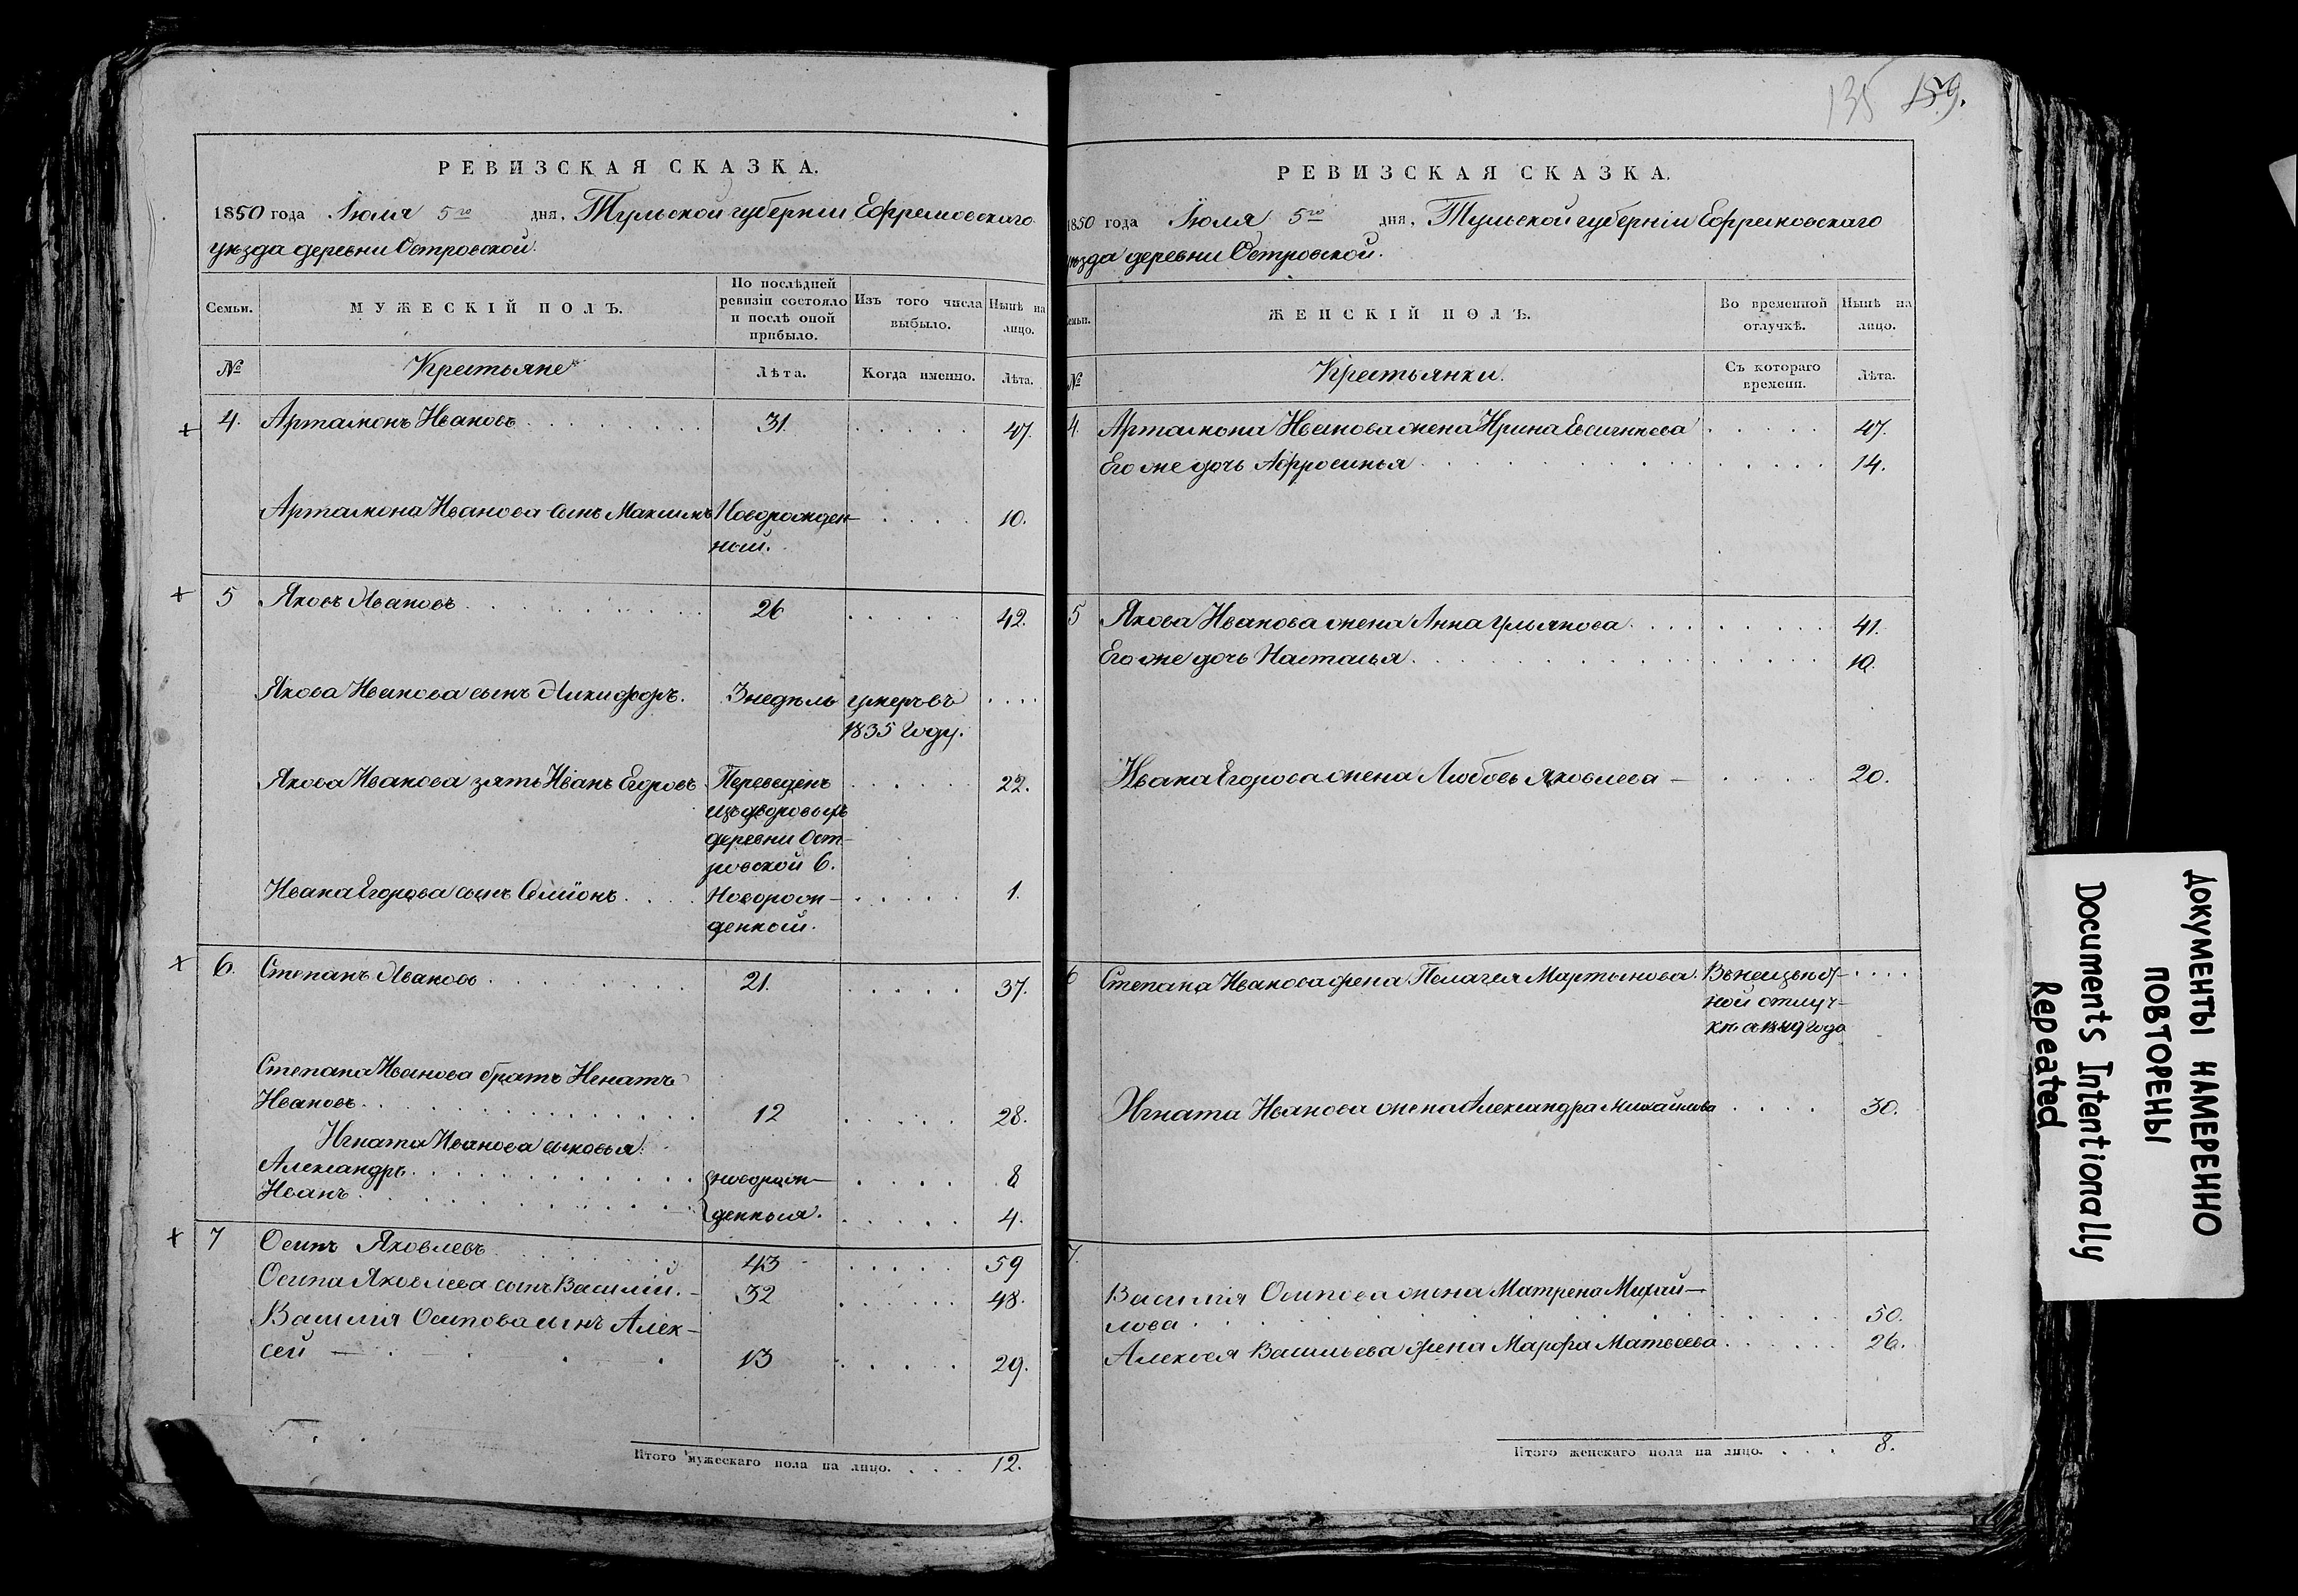 135 159.
РЕВИЗСКАЯ СКАЗКА.
1850 года Іюля 5го дня. Тульской губерніи Ефремовскаго
уѣзда деревни Островской.
Семьи.
МУЖЕСКІЙ ПОЛЪ.
По послѣдней
ревизіи состояло
и послѣ оной
прибыло.
Изъ того числа
выбыло.
Нынѣ на
лицо.
№
Крестьяне
Лѣта.
Когда именно.
Лѣта.
4. Артамонъ Ивановъ 31. 47.
Артамона Иванова сынъ Максимъ Новорожден- 10.
ный.
5 Яковъ Ивановъ 26 42.
Якова Иванова сынъ Никифоръ. 3 недѣль умеръ въ
1835 году.
Якова Иванова зять Иванъ Егоровъ Переведенъ 22.
изъ дворовыхъ
деревни Ост-
ровской 6.
Ивана Егорова сынъ Семіонъ Новорож- 1.
денной.
6. Степанъ Ивановъ 21. 37.
Степана Иванова братъ Игнатъ
Ивановъ 12 28.
Игната Иванова сыновья:
Александръ новорож- 8
Иванъ денныя. 4.
7 Осипъ Яковлевъ 43 59
Осипа Яковлева сынъ Василій. 32 48.
Василія Осипова сынъ Алек-
сей 13 29.
Итого мужескаго пола на лицо. 12.
РЕВИЗСКАЯ СКАЗКА.
1850 года Іюля 5го дня. Тульской губерніи Ефремовскаго
уѣзда деревни Островской.
Семьи.
ЖЕНСКІЙ ПОЛЪ.
Во временной
отлучкѣ.
Нынѣ на
лицо.
№
Крестьянки.
Съ котораго
времени.
Лѣта.
4. Артамона Иванова жена Ирина 47.
Его же дочь Афросинья 14.
5 Якова Иванова жена Анна Ульянова 41.
Его же дочь Настасья 10.
Ивана Егорова жена Любовь Яковлева 20.
6 Степана Иванова жена Пелагея Мартынова. В неизвѣст-
ной отлуч-
кѣ с 1849 года
Игната Иванова жена Александра Михайлова 30.
7. Василія Осипова жена Матрена Михай-
лова 50.
Алексея Васильева жена Марфа Матвеева 26.
Итого женскаго пола на лицо. 8.
ДОКУМЕНТЫ НАМЕРЕННО
ПОВТОРЕНЫ
Documents Intentionally
Repeated